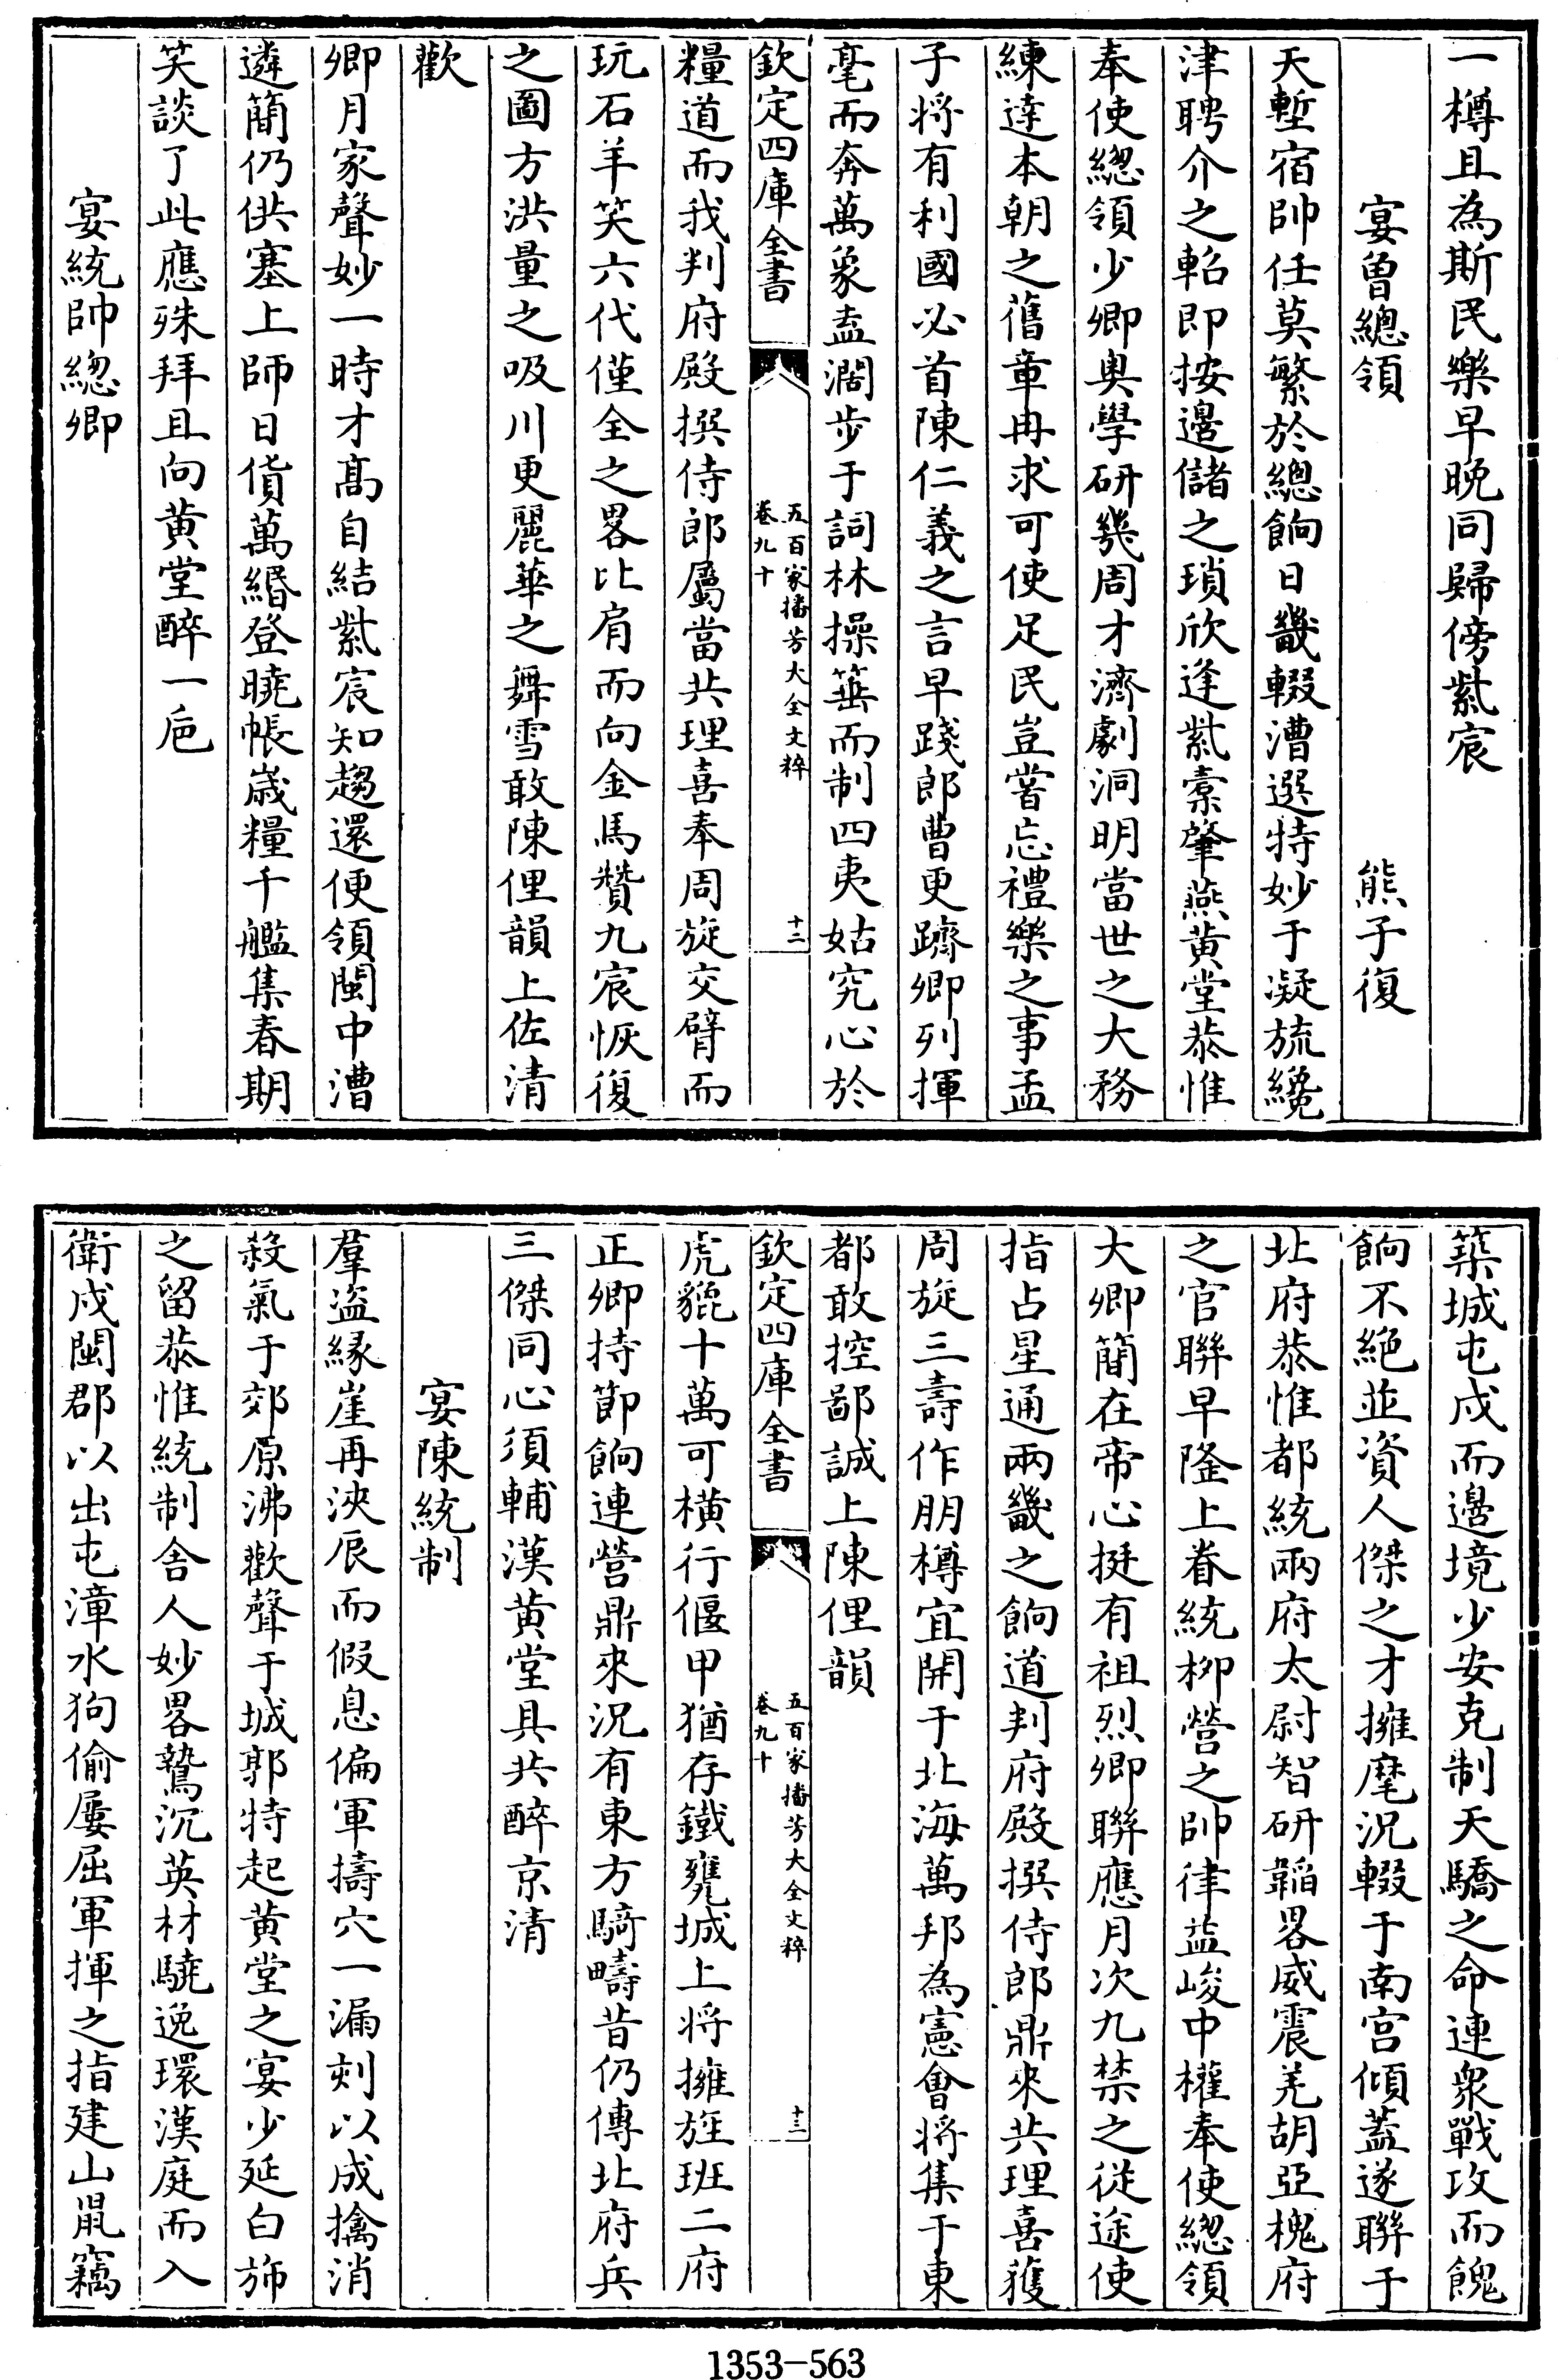 一樽且為斯民樂早晚同歸傍紫宸
宴曾總領　熊子復
天塹宿帥任莫繁於總餉日畿輟漕選特妙于凝旒纔
津聘介之軺即按邊儲之瑣欣逢紫橐肇燕黄堂恭惟
奉使總領少卿奥學研幾周才濟劇洞明當世之大務
練達本朝之舊章冉求可使足民豈甞忘禮樂之事孟
子將有利國必首陳仁義之言早踐郎曹更躋卿列揮
毫而奔萬象盍濶步于詞林操箠而制四夷姑究心於
欽定四庫全書
五百家播芳大全文粹
卷九十
十二
糧道而我判府殿撰侍郎屬當共理喜奉周旋交臂而
玩石羊笑六代僅全之畧比肩而向金馬贊九宸恢復
之圖方洪量之吸川更麗華之舞雪敢陳俚韻上佐清
歡
卿月家聲妙一時才髙自結紫宸知趨還便領閩中漕
遴簡仍供塞上師日貨萬緡登曉帳嵗糧千艦集春期
笑談了此應殊拜且向黄堂醉一巵
宴統帥總卿
築城屯戍而邊境少安克制天驕之命連衆戰攻而餽
餉不絶並資人傑之才擁麾況輟于南宫傾蓋遂聯于
北府恭惟都統兩府太尉智研韜畧威震羌胡亞槐府
之官聯早隆上眷統栁營之帥律益峻中權奉使總領
大卿簡在帝心挺有祖烈卿聯應月次九禁之從途使
指占星通兩畿之餉道判府殿撰侍郎鼎來共理喜獲
周旋三壽作朋樽宜開于北海萬邦為憲會將集于東
都敢控鄙誠上陳俚韻
欽定四庫全書
五百家播芳大全文粹
卷九十
十三
虎貔十萬可横行偃甲猶存鐵甕城上將擁旌班二府
正卿持節餉連營鼎來況有東方騎疇昔仍傳北府兵
三傑同心須輔漢黄堂具共醉京清
宴陳統制
羣盗縁崖再浹辰而假息偏軍擣穴一漏刻以成擒消
殺氣于郊原沸歡聲于城郭特起黄堂之宴少延白斾
之留恭惟統制舎人妙畧鷙沉英材驍逸環漢庭而入
衛戍閩郡以出屯漳水狗偷屢屈軍揮之指建山鼠竊
1353-563